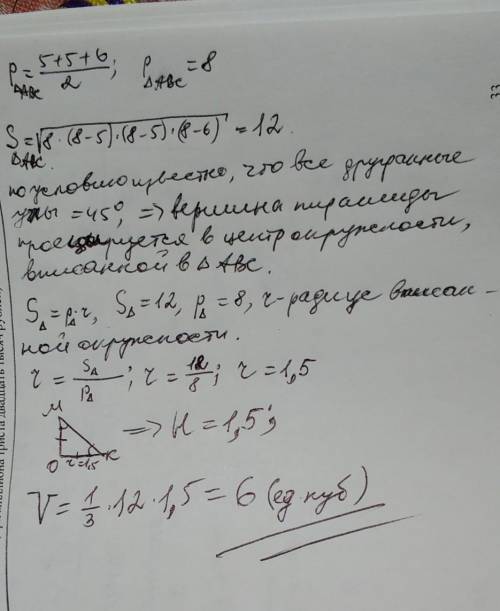 P△ABC = (5+5+6)/2; P△ABC = 8
S△ABC = √(8·(8-5)·(8-5)·(8-6)) = 12.
по условию известно, что все двугранные
углы = 45°, => вершина пирамиды
проецируется в центр окружности,
вписанной в △ABC.
S△ = P△·r, S△ = 12, P△ = 8, r - радиус вписан-
ной окружности.
r = S△/P△; r = 12/8; r = 1,5
M
=> H = 1,5;
O r=1,5 K
V = 1/3 · 12 · 1,5 = 6 (ед. куб)
33
триста двадцать тысяч рублей)